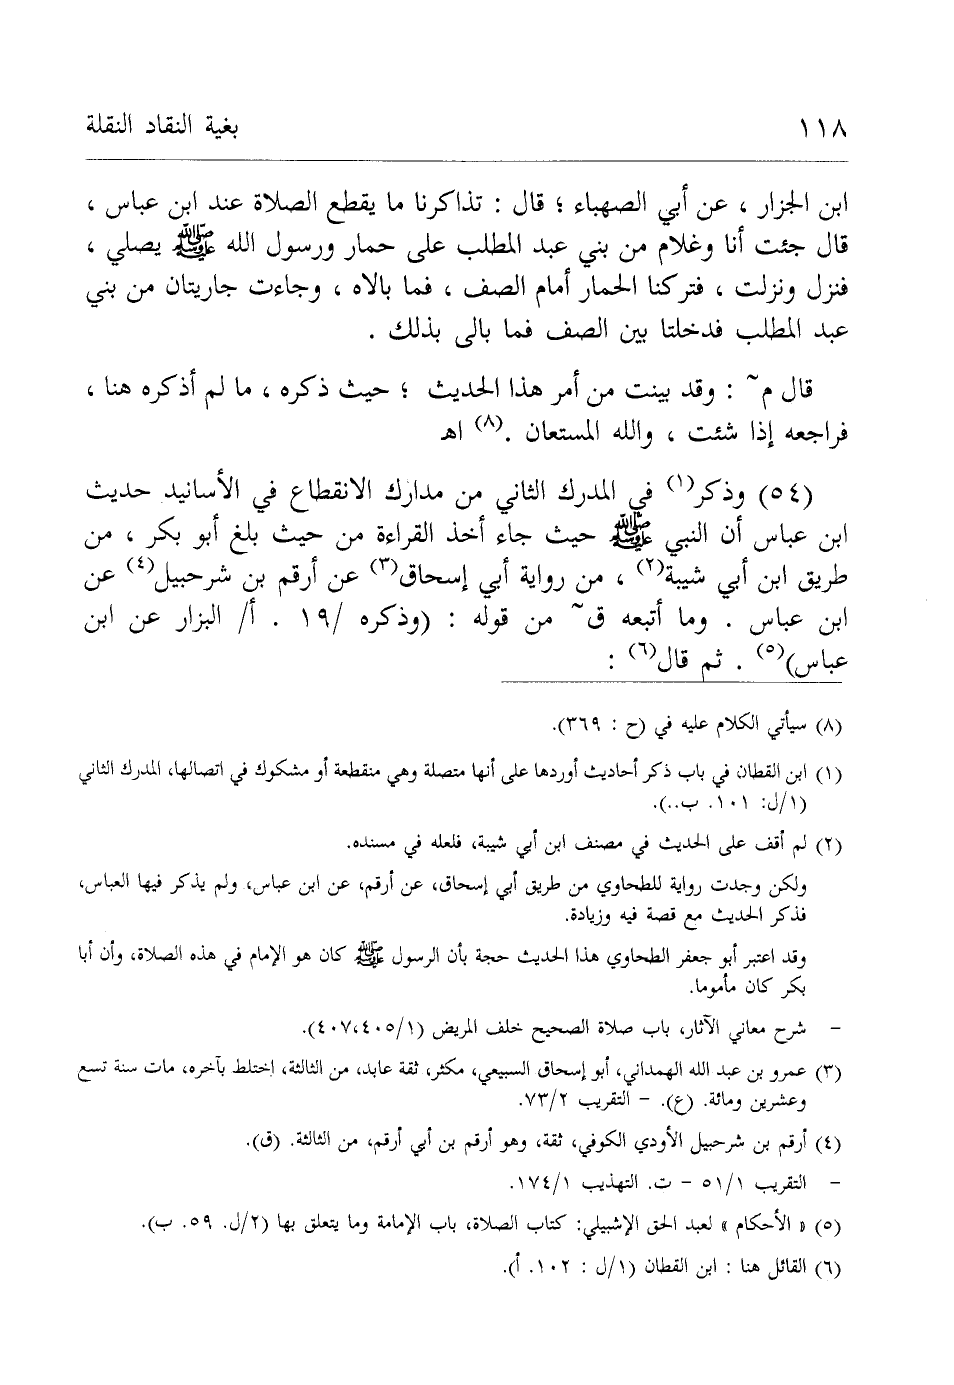 ١١٨
بغية النقاد النقلة
ابن الجزار ، عن أبي الصهباء ؛ قال : تذاكرنا ما يقطع الصلاة عند ابن عباس ،
قال جئت أنا وغلام من بني عبد المطلب على حمار ورسول الله ﷺ يصلي ،
فنزل ونزلت ، فتركنا الحمار أمام الصف ، فما بالاه ، وجاءت جاريتان من بني
عبد المطلب فدخلتا بين الصف فما بالى بذلك .
قال م~ : وقد بينت من أمر هذا الحديث ؛ حيث ذكره ، ما لم أذكره هنا ،
فراجعه إذا شئت ، والله المستعان .(٨) اهـ
(٥٤) وذكر(١) في المدرك الثاني من مدارك الانقطاع في الأسانيد حديث
ابن عباس أن النبي ﷺ حيث جاء أخذ القراءة من حيث بلغ أبو بكر ، من
طريق ابن أبي شيبة(٢) ، من رواية أبي إسحاق(٣) عن أرقم بن شرحبيل(٤) عن
ابن عباس . وما أتبعه ق~ من قوله : (وذكره /١٩ . أ/ البزار عن ابن
عباس)(٥) . ثم قال(٦) :
(٨) سيأتي الكلام عليه في (ح : ٣٦٩).
(١) ابن القطان في باب ذكر أحاديث أوردها على أنها متصلة وهي منقطعة أو مشكوك في اتصالها، المدرك الثاني
(١/ل: ١٠١. ب..).
(٢) لم أقف على الحديث في مصنف ابن أبي شيبة، فلعله في مسنده.
ولكن وجدت رواية للطحاوي من طريق أبي إسحاق، عن أرقم، عن ابن عباس، ولم يذكر فيها العباس،
فذكر الحديث مع قصة فيه وزيادة.
وقد اعتبر أبو جعفر الطحاوي هذا الحديث حجة بأن الرسول ﷺ كان هو الإمام في هذه الصلاة، وأن أبا
بكر كان مأموما.
– شرح معاني الآثار، باب صلاة الصحيح خلف المريض (٤٠٧،٤٠٥/١).
(٣) عمرو بن عبد الله الهمداني، أبو إسحاق السبيعي، مكثر، ثقة عابد، من الثالثة، اختلط بآخره، مات سنة تسع
وعشرين ومائة. (ع). – التقريب ٧٣/٢.
(٤) أرقم بن شرحبيل الأودي الكوفي، ثقة، وهو أرقم بن أبي أرقم، من الثالثة. (ق).
– التقريب ٥١/١ – ت. التهذيب ١٧٤/١.
(٥) « الأحكام » لعبد الحق الإشبيلي: كتاب الصلاة، باب الإمامة وما يتعلق بها (٢/ل. ٥٩. ب).
(٦) القائل هنا : ابن القطان (١/ل : ١٠٢. أ).